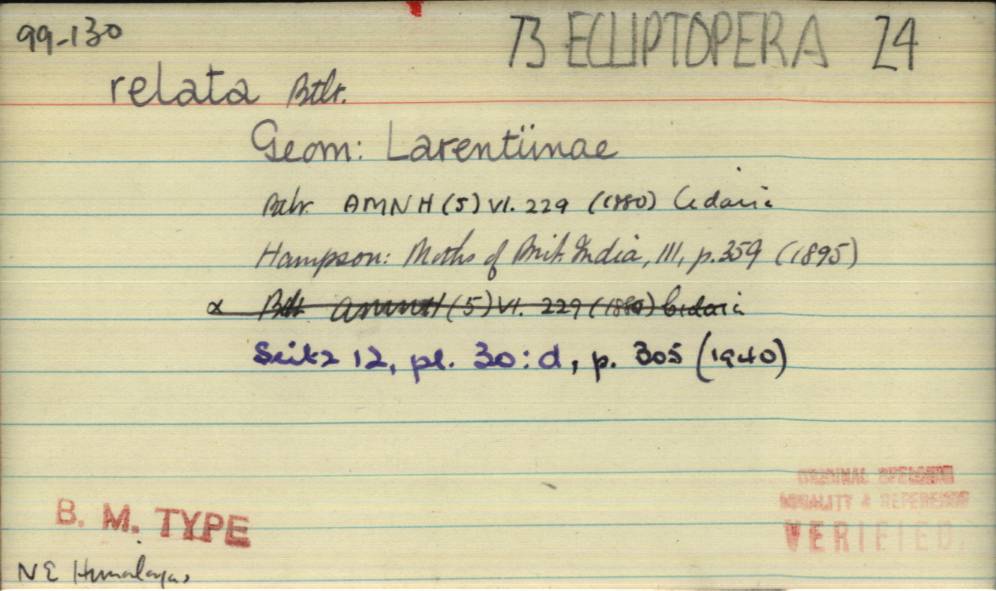 99-130
73 ECLIPTOPERA 24
relata Btlr.
Geom: Larentiinae
Btlr. AMNH (5) VI. 229 (1880) Cidaria
Hampson: Moths of Brit. India, III, p. 359 (1895)
α Btlr AMNH (5) VI. 229 (1880) Cidaria
Seitz 12, pl. 30:d, p. 305 (1940)
ORIGINAL SPELLING
LOCALITY & REFERENCE
VERIFIED.
B. M. TYPE
NE Himalayas